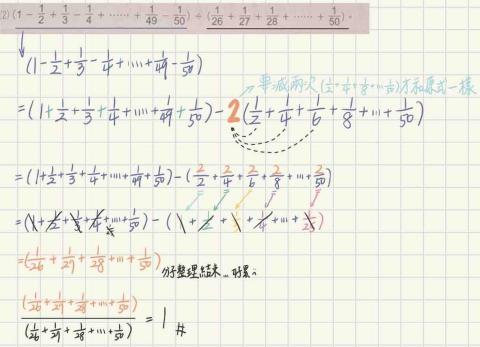 (2) (1 - 1/2 + 1/3 - 1/4 + …… + 1/49 - 1/50) ÷ (1/26 + 1/27 + 1/28 + …… + 1/50)。
(1 - 1/2 + 1/3 - 1/4 + .... + 1/49 - 1/50)
要減兩次 (1/2 + 1/4 + 1/8 + ... 1/50) 才和原式一樣
= (1 + 1/2 + 1/3 + 1/4 + .... + 1/49 + 1/50) - 2 (1/2 + 1/4 + 1/6 + 1/8 + ... + 1/50)
= (1 + 1/2 + 1/3 + 1/4 + .... + 1/49 + 1/50) - (2/2 + 2/4 + 2/6 + 2/8 + ... + 2/50)
= (1 + 1/2 + 1/3 + 1/4 + .... + 1/50) - (1 + 1/2 + 1/3 + 1/4 + ... + 1/25)
= (1/26 + 1/27 + 1/28 + ... + 1/50) 分子整理結束 ... 好累
(1/26 + 1/27 + 1/28 + ... + 1/50) / (1/26 + 1/27 + 1/28 + ... + 1/50) = 1 #